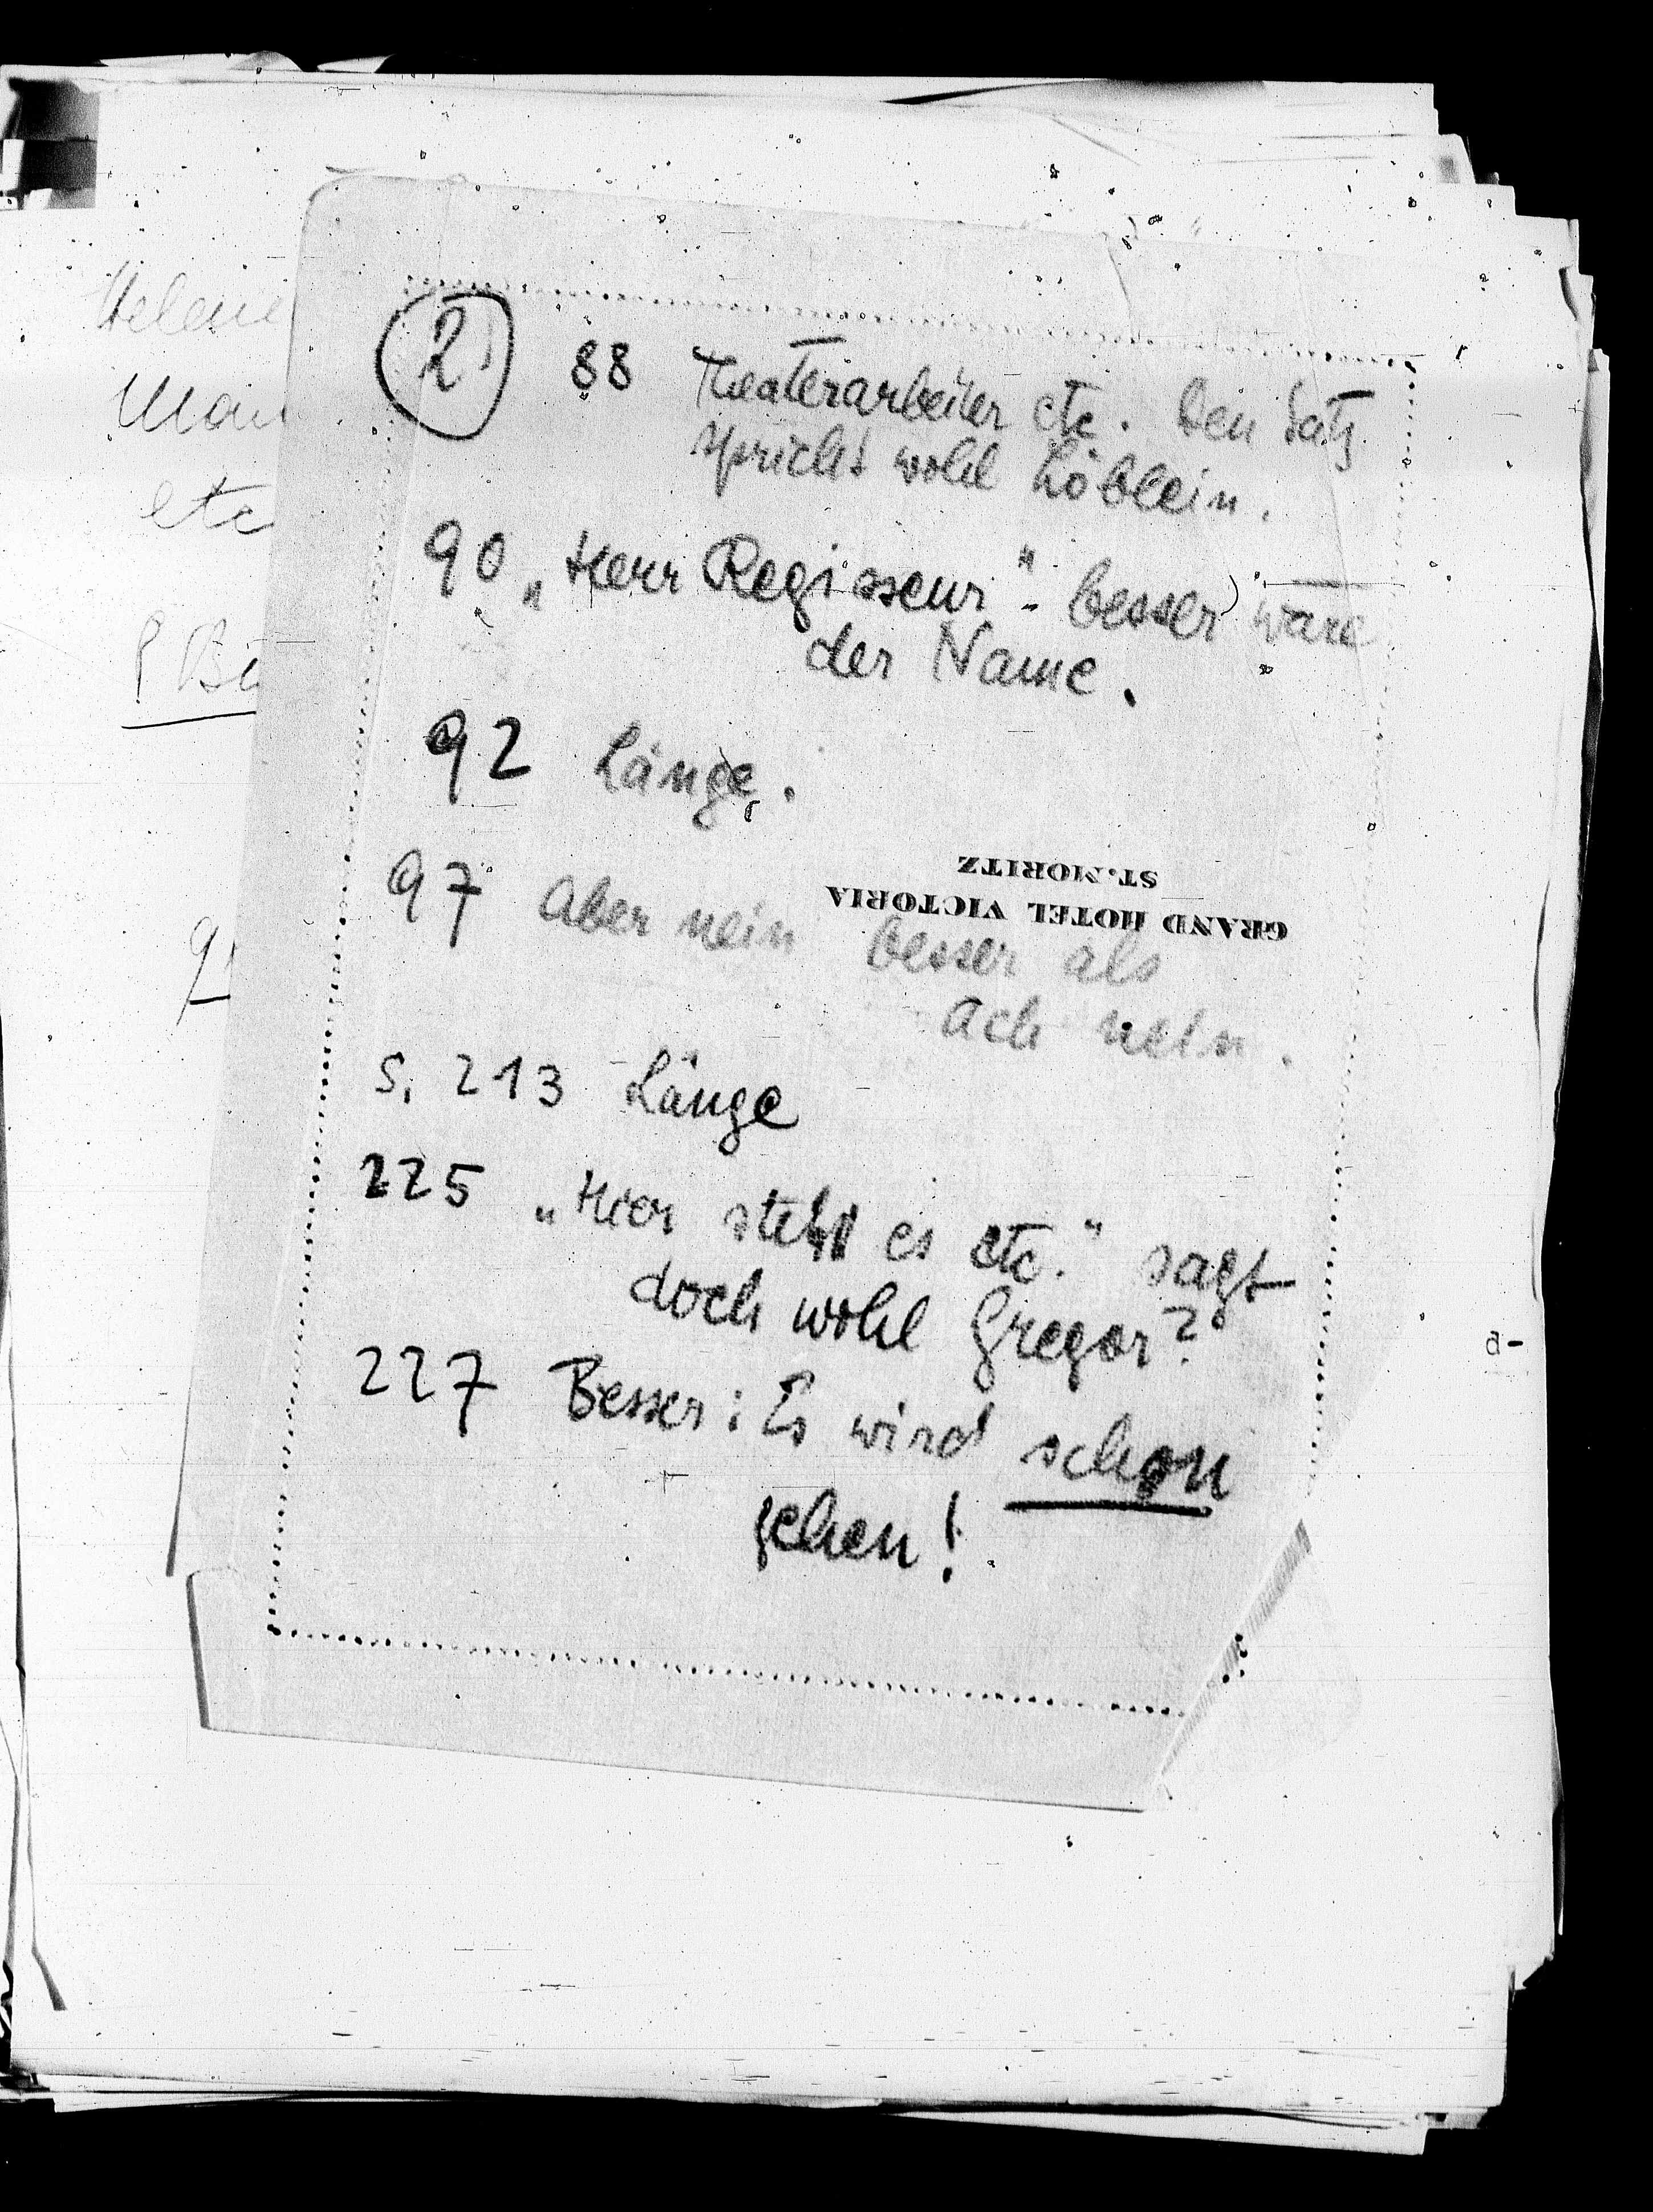 Helene
etc
2) 88 Theaterarbeiter etc. Den Satz
spricht wohl Löblein.
90 „Herr Regisseur". besser wäre
der Name.
92 Länge.
GRAND HOTEL VICTORIA
ST. MORITZ
97 Aber nein besser als
Ach nein.
S. 213 Länge
225 „Hier steht es etc." sagt
doch wohl Gregor?
227 Besser: Es wird schon
gehen!
a-